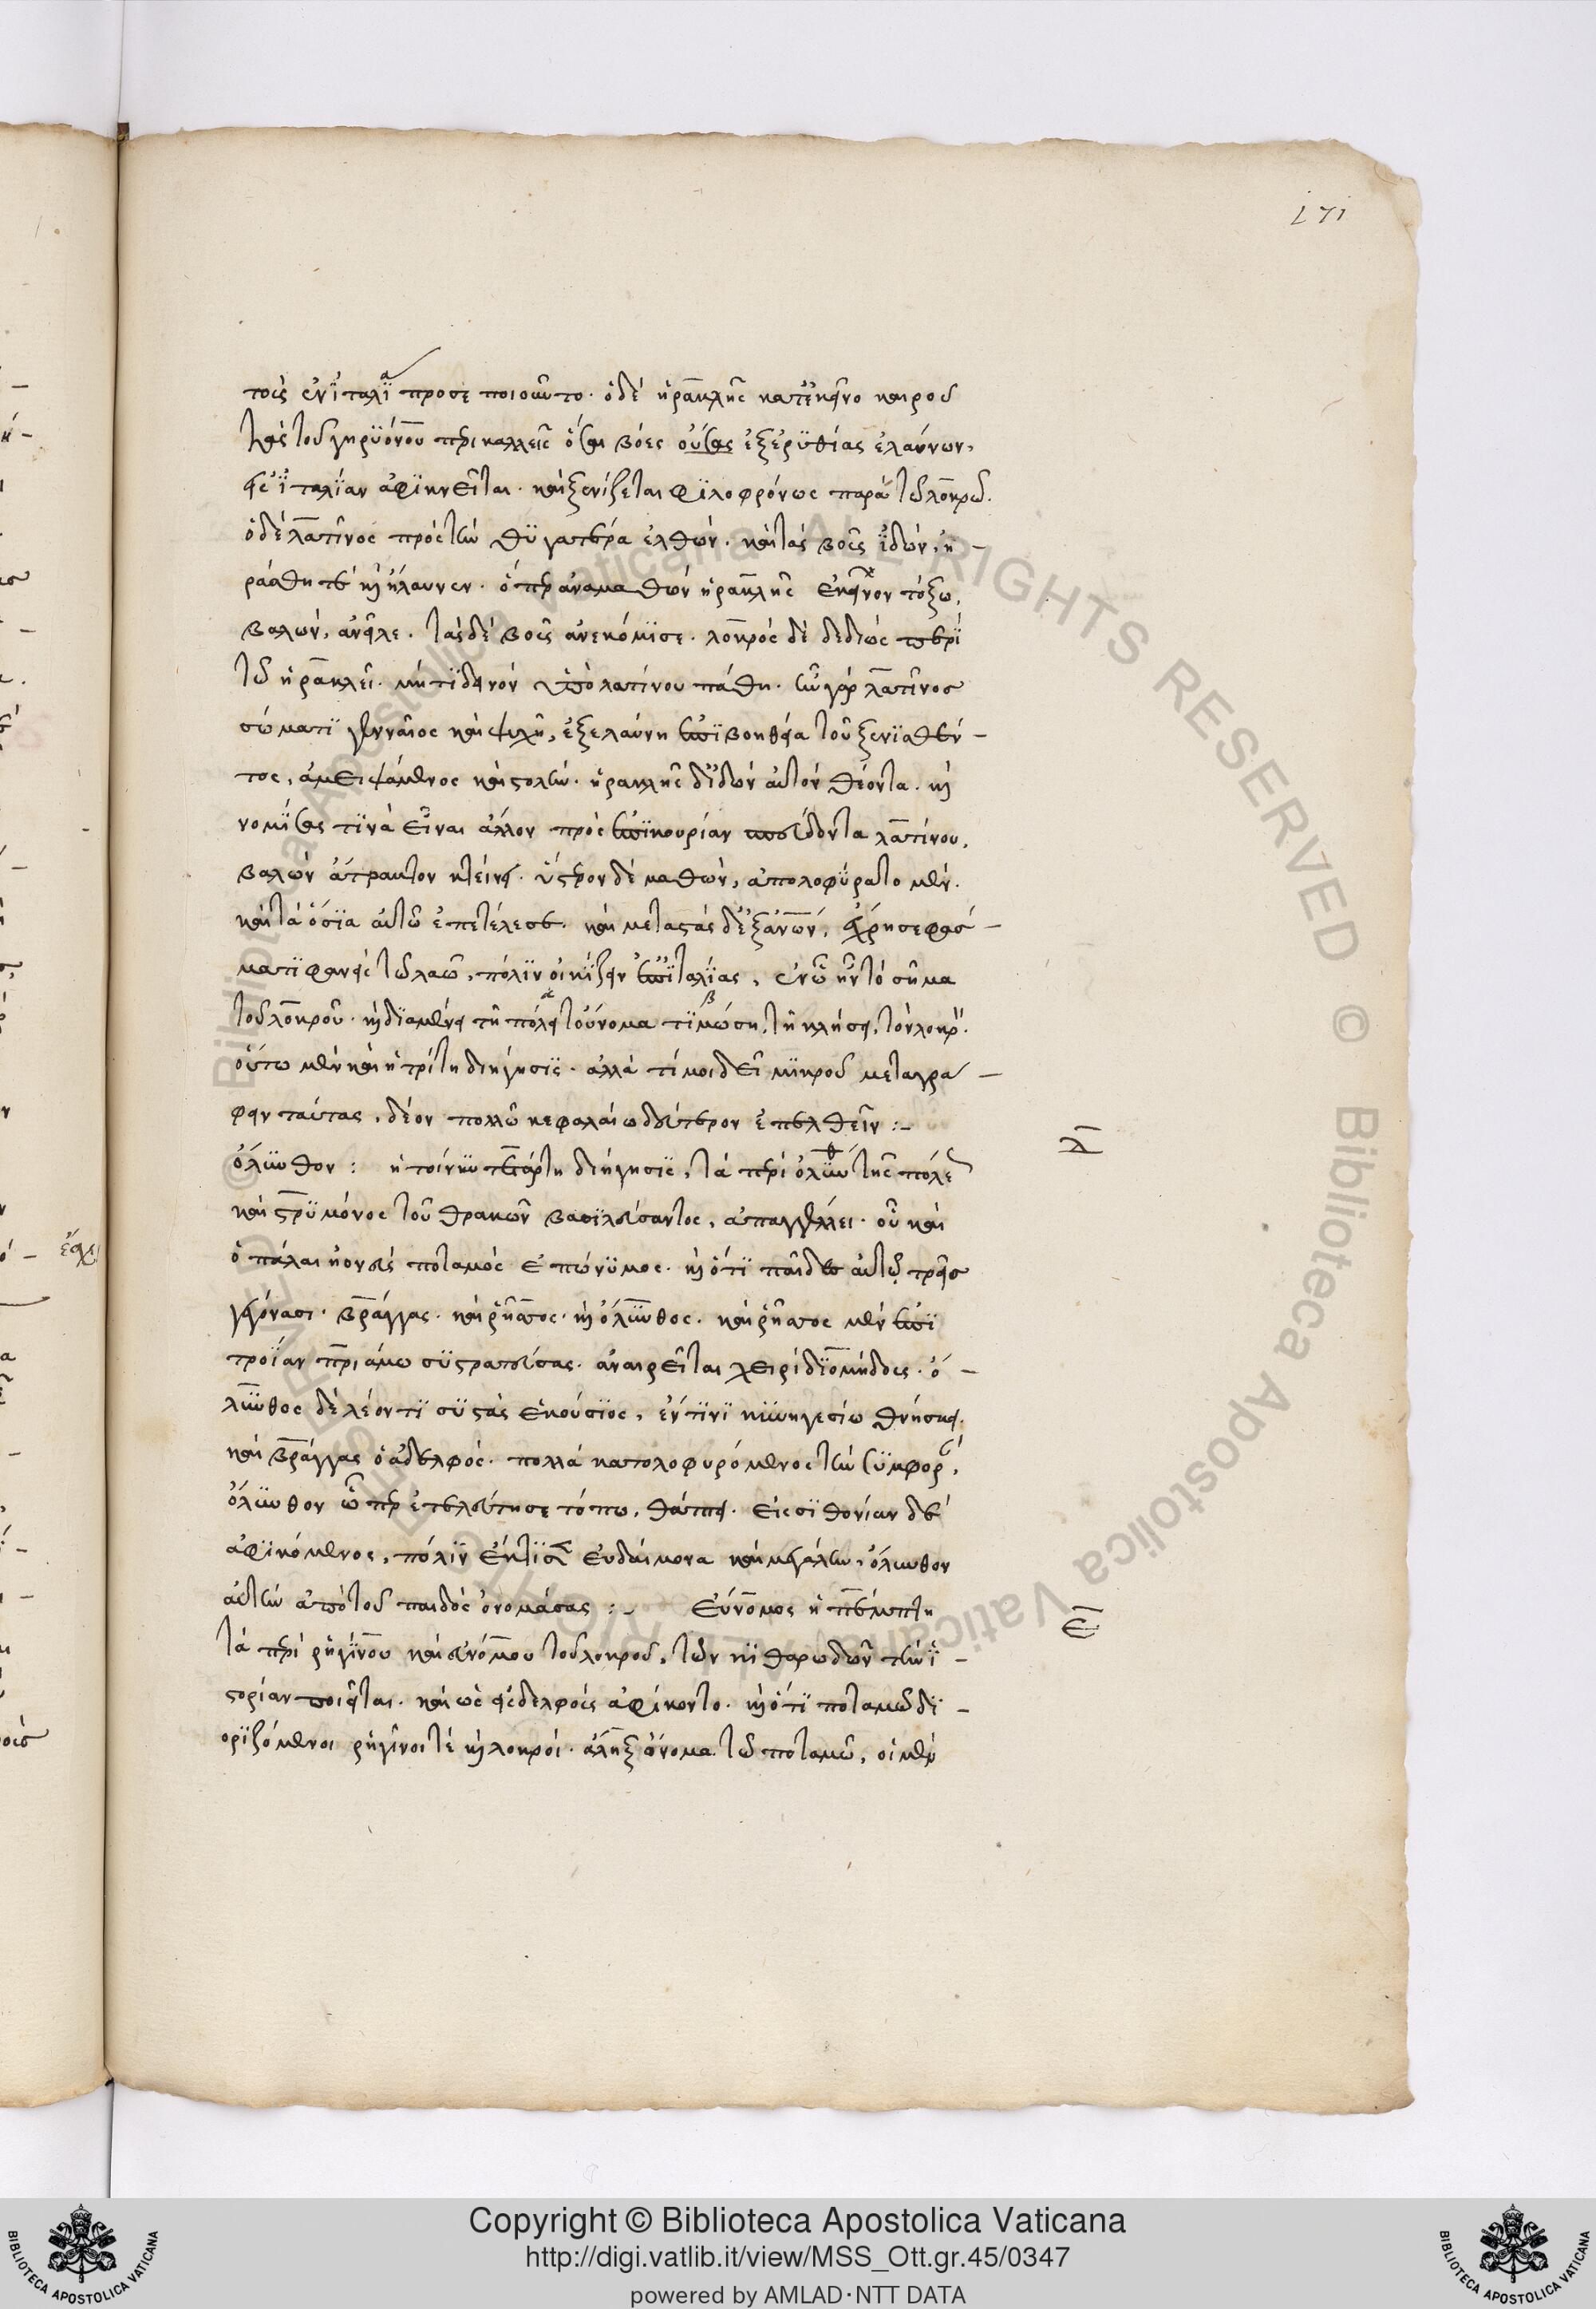 171
τοῖς ἐν ἰταλίᾳ προσεποιοῦντο. ὁ δὲ ἡρακλῆς κατ' ἐκεῖνο καιροῦ
τὰς τοῦ γηρυόνου περικαλλεῖς οὔσας βόες οὔσας ἐξ ἐρυθίας ἐλαύνων,
εἰς ἰταλίαν ἀφικνεῖται. καὶ ξενίζεται φιλοφρόνως παρὰ τῷ λοκρῷ.
ὁ δὲ λατῖνος πρὸς τὴν θυγατέρα ἐλθών. καὶ τὰς βοῦς ἰδών, ἠ-
ράσθη τὲ καὶ ἤλαυνεν. ὅπερ ἀναμαθὼν ἡρακλῆς ἐκεῖνον τόξῳ,
βαλών, ἀνεῖλε. τὰς δὲ βοῦς ἀνεκόμισε. λοκρὸς δὲ δεδιὼς περὶ
τῷ ἡρακλεῖ. μή τι δεινὸν ὑπὸ λατίνου πάθῃ. ἦν γὰρ λατῖνος
σώματι γενναῖος καὶ ψυχῇ, ἐξελαύνει ἐπὶ βοηθείᾳ τοῦ ξενισθέν-
τος, ἀμειψάμενος καὶ στολήν. ἡρακλῆς δ' ἰδὼν αὐτὸν θέοντα. καὶ
νομίσας τινὰ εἶναι ἄλλον πρὸς ἐπικουρίαν σπεύδοντα λατίνου,
βαλὼν ἄτρακτον κτείνει. ὕστερον δὲ μαθών, ἀπολοφύρατο μέν.
καὶ τὰ ὅσια αὐτῷ ἐπετέλεσε. καὶ μεταστὰς δ' ἐξ ἀνων, ἔχρησε φάσ-
ματι φανεὶς τῷ λαῷ, πόλιν οἰκίζειν ἐπ' ἰταλίας, ἐν ᾧ ἦν τὸ σῆμα
τοῦ λοκροῦ. καὶ διαμένει τῇ πόλει τοὔνομα τιμώσῃ, τῇ κλήσει, τὸν λοκρ.
οὕτω μὲν καὶ ἡ τρίτη διήγησις. ἀλλὰ τί μοι δεῖ μικροῦ μεταγρά-
φειν ταύτας, δέον πολλῷ κεφαλαιωδέστερον ἐπελθεῖν :-
Δ
ὄλυνθον : ἡ τοίνυν τετάρτη διήγησις, τὰ περὶ ὀλύνθου τῆς πόλε
καὶ στρυμόνος τοῦ θρακῶν βασιλεύσαντος, ἀπαγγέλλει. οὗ καὶ
ὁ πάλαι ἠονεὺς ποταμὸς ἐπώνυμος. καὶ ὅτι παῖδες αὐτῷ τρεῖς
γεγόνασι. βράγγας. καὶ ῥῆσος. καὶ ὄλυνθος. καὶ ῥῆσος μὲν ἐπὶ
τροίαν πριάμῳ συστρατεύσας. ἀναιρεῖται χειρὶ διομήδους. ὄ-
λυνθος δὲ λέοντι συστὰς ἑκούσιος, ἔν τινι κυνηγεσίῳ θνήσκει.
καὶ βράγγας ὁ ἀδελφός. πολλὰ κατολοφυρόμενος τὴν συμφορ,
ὄλυνθον ᾧπερ ἐτελεύτησε τόπῳ, θάπτει. εἰς σιθονίαν δὲ
ἀφικόμενος, πόλιν ἔκτισεν εὐδαίμονα καὶ μεγάλην, ὄλυνθον
αὐτὴν ἀπὸ τοῦ παιδὸς ὀνομάσας :- εὔνομος ἡ πέμπτη
Ε
τὰ περὶ ῥηγίνου καὶ εὐνόμου τοῦ λοκροῦ, τῶν κιθαρῳδῶν τὴν ἱ-
στορίαν ποιεῖται. καὶ ὡς εἰς δελφοὺς ἀφίκοντο. καὶ ὅτι ποταμῷ δι-
οριζόμενοι ῥηγῖνοι τὲ καὶ λοκροί. ἄληξ ὄνομα τῷ ποταμῷ, οἱ μὲν
Copyright © Biblioteca Apostolica Vaticana
http://digi.vatlib.it/view/MSS_Ott.gr.45/0347
powered by AMLAD·NTT DATA